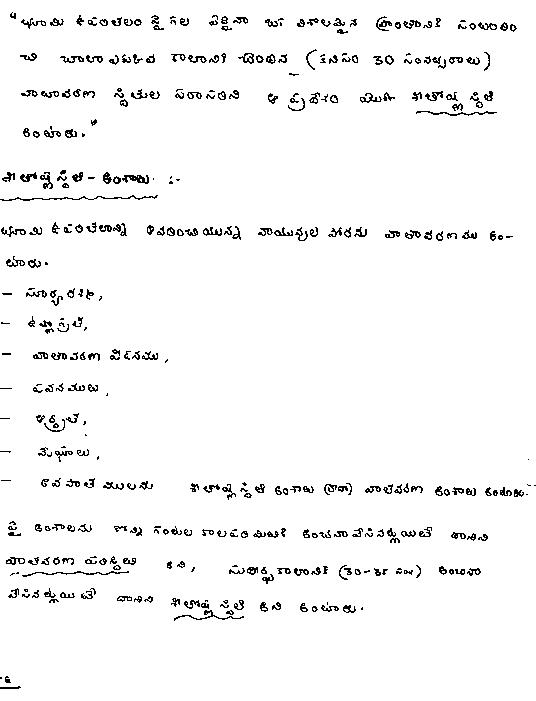 "భూమి ఉపరితలం పై గల ఏదైనా ఒక విశాలమైన ప్రాంతానికి సంబంధిం
చి చాలా ఎక్కువ కాలానికి చెందిన (కనీసం 30 సంవత్సరాలు)
వాతావరణ స్థితుల సరాసరిని ఆ ప్రదేశం యొక్క శీతోష్ణ స్థితి
అంటారు."
శీతోష్ణ స్థితి - అంశాలు :-
భూమి ఉపరితలాన్ని ఆవరించియున్న వాయువుల పొరను వాతావరణము అం-
టారు.
- సూర్యరశ్మి,
- ఉష్ణోగ్రత,
- వాతావరణ పీడనము,
- పవనములు,
- ఆర్ద్రత,
- మేఘాలు,
- అవపాతములను శీతోష్ణ స్థితి అంశాలు (లేదా) వాతావరణ అంశాలు అంటారు.
పై అంశాలను కొన్ని గంటల కాలపరిమితికి అంచనావేసినట్లయితే దానిని
వాతావరణ పరిస్థితి అని, సుదీర్ఘకాలానికి (30-35 సం॥) అంచనా
వేసినట్లయితే దానిని శీతోష్ణ స్థితి అని అంటారు.